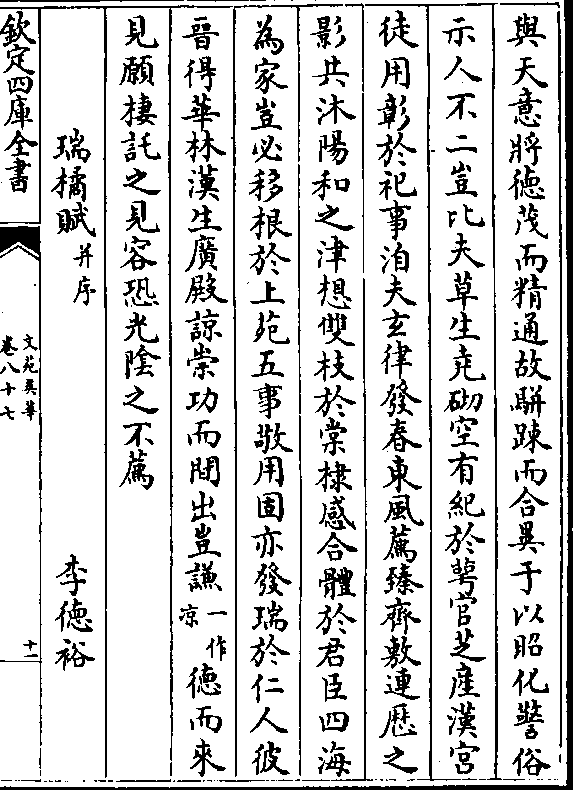 與天意將德茂而精通故駢踈而合異于以昭化警俗
示人不二豈比夫草生堯砌空有紀於蓂官芝產漢宮
徒用彰於祀事洎夫玄律發春東風薦臻齊敷連歴之
影共沐陽和之津想雙枝於棠棣感合體於君臣四海
為家豈必移根於上苑五事敬用固亦發瑞於仁人彼
晉得華林漢生廣殿諒崇功而間出豈謙一作凉德而來
見願棲託之見容恐光陰之不薦
瑞橘賦并序 李德裕
欽定四庫全書
文苑英華
卷八十七
十一